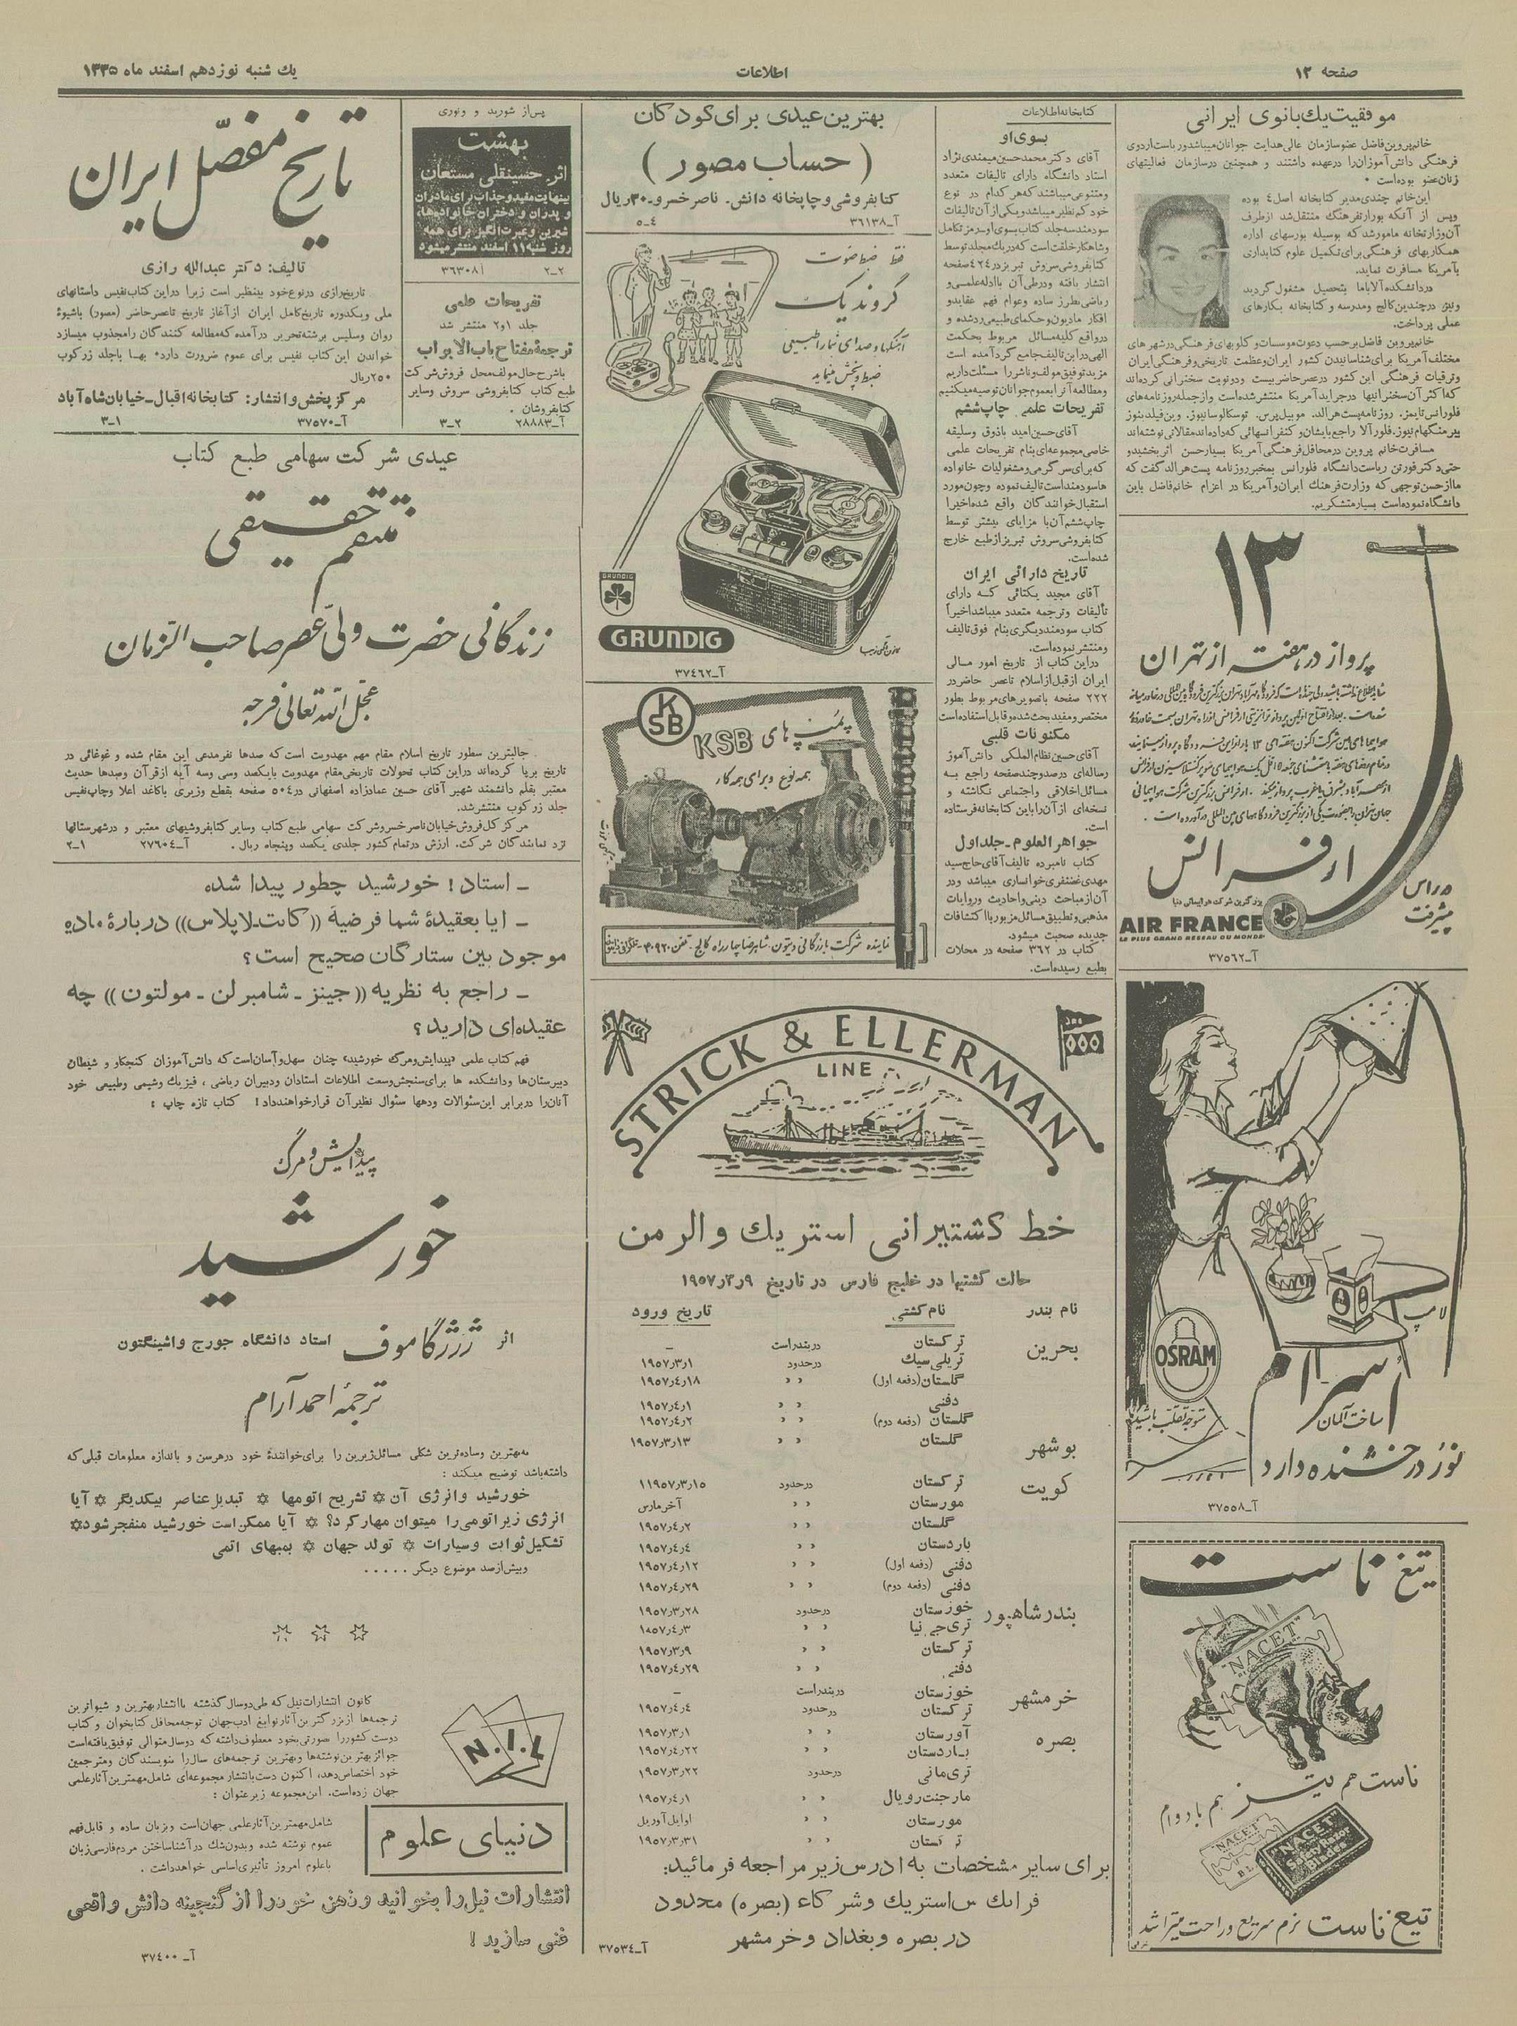 صفحه ۱۲
اطلاعات
یك شنبه نوزدهم اسفند ماه ۱۳۳۵
موفقیت یك بانوی ایرانی
خانم پروین فاضل عضو سازمان عالی هدایت جوانان میباشد و ریاست اردوی
فرهنگی دانش آموزان را درعهده داشتند و همچنین درسازمان فعالیتهای
زنان عضو بوده است.
این خانم چندی مدیر کتابخانه اصل ٤ بوده
وپس از آنکه بوزارت فرهنك منتقل شد ازطرف
آن وزارتخانه مامور شد که بوسیله بورسهای اداره
همکاریهای فرهنگی برای تکمیل علوم کتابداری
بآمریکا مسافرت نماید.
در دانشکده آلاباما بتحصیل مشغول گردید
ونیز درچندین کالج ومدرسه و کتابخانه بکارهای
عملی پرداخت.
خانم پروین فاضل برحسب دعوت موسسات و کلوبهای فرهنگی درشهرهای
مختلف آمریکا برای شناسانیدن کشور ایران وعظمت تاریخی و فرهنگی ایران
وترقیات فرهنگی این کشور درعصر حاضر بیست و دو نوبت سخنرانی کرده اند
که اکثر آن سخنرانیها در جراید آمریکا منتشر شده است و از جمله روزنامه های
فلورانس تایمز. روزنامه پست هرالد. موبیل پرس. توسکالوسانیوز. وین فیلد نیوز
بیرمنگهام نیوز. فلورآلا راجع بایشان و کنفرانسهائی که داده اند مقالاتی نوشته اند
مسافرت خانم پروین درمحافل فرهنگی آمریکا بسیار حسن اثر بخشید و
حتی دکتر فورتن ریاست دانشگاه فلورانس بمخبر روزنامه پست هرالد گفت که
ما از حسن توجهی که وزارت فرهنك ایران و آمریکا در اعزام خانم فاضل باین
دانشگاه نموده است بسیار متشکریم.
۱۳
پرواز درهفته از تهران
ارفرانس
بزرگترین شرکت هواپیمائی دنیا
در راس
پیشرفت
AIR FRANCE
LE PLUS GRAND RESEAU DU MONDE
آ-۳۷٥٦۲
لامپ
OSRAM
اُسرام
ساخت آلمان
متوجه تقلب باشید
نور درخشنده دارد
آ-۳۷٥٥۸
تیغ ناست
NACET
ناست هم تیز هم با دوام
NACET
NACET
Razor
Blades
تیغ ناست نرم سریع و راحت میتراشد
کتابخانه اطلاعات
بسوی او
آقای دکتر محمدحسین میمندی نژاد
استاد دانشگاه دارای تالیفات متعدد
ومتنوعی میباشند که هر کدام در نوع
خود کم نظیر میباشد و یکی از آن تالیفات
سودمند سه جلد کتاب بسوی او رمز تکامل
وشاهکار خلقت است که در یك مجلد توسط
کتابفروشی سروش تبریز در ٤۲٤ صفحه
انتشار یافته و در طی آن با ادله علمی و
ریاضی بطرز ساده و عوام فهم عقاید و
افکار مادیون و حکمای طبیعی رد شده و
درواقع کلیه مسائل مربوط بحکمت
الهی در این تالیف جامع گرد آمده است
مزید توفیق مولف و ناشر را مسئلت داریم
ومطالعه آنرا بعموم جوانان توصیه میکنیم
تفریحات علمی. چاپ ششم
آقای حسین امید باذوق وسلیقه
خاصی مجموعه ای بنام تفریحات علمی
که برای سرگرمی و مشغولیات خانواده
ها سودمند است تالیف نموده و چون مورد
استقبال خوانندگان واقع شده اخیرا
چاپ ششم آن با مزایای بیشتر توسط
کتابفروشی سروش تبریز از طبع خارج
شده است.
تاریخ دارائی ایران
آقای مجید یکتائی که دارای
تألیفات و ترجمه متعدد میباشد اخیراً
کتاب سودمند دیگری بنام فوق تالیف
ومنتشر نموده است.
در این کتاب از تاریخ امور مالی
ایران از قبل از اسلام تا عصر حاضر در
۲۲۲ صفحه با تصویرهای مربوط بطور
مختصر و مفید بحث شده و قابل استفاده است
مکنونات قلبی
آقای حسین نظام الملکی دانش آموز
رساله ای درصد و چند صفحه راجع به
مسائل اخلاقی واجتماعی نگاشته و
نسخه ای از آن را باین کتابخانه فرستاده
است.
جواهر العلوم - جلد اول
کتاب نامبرده تالیف آقای حاج سید
مهدی غضنفری خوانساری میباشد و در
آن از مباحث دینی و احادیث و روایات
مذهبی و تطبیق مسائل مزبور با اکتشافات
جدیده صحبت میشود.
کتاب در ۳٦۲ صفحه در محلات
بطبع رسیده است.
بهترین عیدی برای کودکان
( حساب مصور )
کتابفروشی و چاپخانه دانش - ناصرخسرو - ۳۰ریال
آ-۳٦۱۳۸
٤-٥
فقط ضبط صوت
گروندیگ
آهنگها و صدای شما را طبیعی
ضبط و پخش مینماید
GRUNDIG
GRUNDIG
آ-۳۷٤٦۲
KSB
پمپ های KSB
همه نوع و برای همه کار
نماینده شرکت بازرگانی ویتون - شاهرضا چهارراه کالج - تلفن ٤۰۹۲۰
STRICK & ELLERMAN
LINE
خط کشتیرانی استریك والرمن
حالت کشتیها در خلیج فارس در تاریخ ۱۹٥۷ر۳ر۹
نام بندر نام کشتی تاریخ ورود
بحرین ترکستان دربندراست –
تریلی سیك درحدود ۱۹٥۷ر۳ر۱
گلستان (دفعه اول) « « ۱۹٥۷ر٤ر۱۸
دفنی « « ۱۹٥۷ر٤ر۱
گلستان (دفعه دوم) « « ۱۹٥۷ر٤ر۲
بوشهر گلستان « « ۱۹٥۷ر۳ر۱۳
کویت ترکستان درحدود ۱۱۹٥۷ر۳ر۱٥
مورستان « « آخر مارس
گلستان « « ۱۹٥۷ر٤ر۲
باردستان « « ۱۹٥۷ر٤ر٤
دفنی (دفعه اول) « « ۱۹٥۷ر٤ر۱۲
دفنی (دفعه دوم) « « ۱۹٥۷ر٤ر۲۹
بندرشاهپور خوزستان درحدود ۱۹٥۷ر۳ر۲۸
تری جی نیا « « ۱۹٥۷ر٤ر۳
ترکستان « « ۱۹٥۷ر۳ر۹
دفنی « « ۱۹٥۷ر٤ر۲۹
خرمشهر خوزستان دربندراست –
ترکستان درحدود ۱۹٥۷ر٤ر٤
بصره آورستان « « ۱۹٥۷ر۳ر۱
باردستان « « ۱۹٥۷ر٤ر۲۲
تری مانی درحدود ۱۹٥۷ر۳ر۲۲
مارجنت رویال « « ۱۹٥۷ر٤ر۱
مورستان « « اوایل آوریل
ترکستان « « ۱۹٥۷ر۳ر۳۱
برای سایر مشخصات به ادرس زیر مراجعه فرمائید:
فرانك س استریك و شرکاء (بصره) محدود
در بصره و بغداد و خرمشهر
آ-۳۷٥۳٤
پس از شورید و ونوری
بهشت
اثر. حسینقلی مستعان
بینهایت مفید و جذاب برای مادران
و پدران و دختران خانواده ها،
شیرین و عبرت انگیز برای همه
روز شنبه ۱۱ اسفند منتشر میشود
آ۳٦۳۰۸
۲-۲
تفریحات علمی
جلد ۱و۲ منتشر شد
ترجمهٔ مفتاح باب الابواب
باشرح حال مولف محل فروش شرکت
طبع کتاب کتابفروشی سروش وسایر
کتابفروشان .
آ-۲۸۸۸۳
۲-۳
تاریخ مفصّل ایران
تالیف: دکتر عبدالله رازی
تاریخ رازی درنوع خود بینظیر است زیرا دراین کتاب نفیس داستانهای
ملی ویکدوره تاریخ کامل ایران از آغاز تاریخ تا عصر حاضر (مصور) باشیوهٔ
روان وسلیس برشته تحریر درآمده که مطالعه کنندگان را مجذوب میسازد
خواندن این کتاب نفیس برای عموم ضرورت دارد. بها با جلد زرکوب
۲٥۰ ریال
مرکز پخش و انتشار: کتابخانه اقبال - خیابان شاه آباد
آ-۳۷٥۷۰
۱-۳
عیدی شرکت سهامی طبع کتاب
منتقم حقیقی
زندگانی حضرت ولیّ عصر صاحب الزمان
عجّل الله تعالی فرجه
جالبترین سطور تاریخ اسلام مقام مهم مهدویت است که صدها نفر مدعی این مقام شده و غوغائی در
تاریخ برپا کرده اند دراین کتاب تحولات تاریخی مقام مهدویت بایکصد وسی وسه آیه از قرآن وصدها حدیث
معتبر بقلم دانشمند شهیر آقای حسین عمادزاده اصفهانی در٥۰٤ صفحه بقطع وزیری باکاغذ اعلا وچاپ نفیس
جلد زرکوب منتشر شد.
مرکز کل فروش خیابان ناصرخسرو شرکت سهامی طبع کتاب وسایر کتابفروشیهای معتبر و درشهرستانها
نزد نمایندگان شرکت. ارزش درتمام کشور جلدی یکصد وپنجاه ریال . آ-۲۷٦۰٤ ۱-۲
ـ استاد ! خورشید چطور پیدا شده
ـ ایا بعقیدهٔ شما فرضیهٔ ((کانت-لاپلاس)) دربارهٔ ماده
موجود بین ستارگان صحیح است ؟
ـ راجع به نظریه ((جینز - شامبرلن - مولتون)) چه
عقیده ای دارید ؟
فهم کتاب علمی «پیدایش و مرگ خورشید» چنان سهل و آسان است که دانش آموزان کنجکاو و شیطان
دبیرستان ها ودانشکده ها برای سنجش وسعت اطلاعات استادان ودبیران ریاضی ، فیزیك وشیمی وطبیعی خود
آنان را دربرابر این سئوالات و دهها سئوال نظیر آن قرار خواهند داد ! کتاب تازه چاپ :
پیدایش و مرگ
خورشید
اثر ژرژ گاموف استاد دانشگاه جورج واشینگتون
ترجمهٔ احمد آرام
به بهترین وساده ترین شکلی مسائل زیرین را برای خوانندهٔ خود درهرسن و باندازه معلومات قبلی که
داشته باشد توضیح میکند :
خورشید وانرژی آن ✡ تشریح اتومها ✡ تبدیل عناصر بیکدیگر ✡ آیا
انرژی زیر اتومی را میتوان مهار کرد؟ ✡ آیا ممکن است خورشید منفجر شود ✡
تشکیل ثوابت وسیارات ✡ تولد جهان ✡ بمبهای اتمی
وبیش از صد موضوع دیگر . . . . .
N.I.L
کانون انتشارات نیل که طی دوسال گذشته با انتشار بهترین و شیواترین
ترجمه ها از بزرگترین آثار نوابغ ادب جهان توجه محافل کتابخوان و کتاب
دوست کشور را بصورتی بخود معطوف داشته که دوسال متوالی توفیق یافته است
جوائز بهترین نوشته ها و بهترین ترجمه های سال را بنویسندگان ومترجمین
خود اختصاص دهد، اکنون دست بانتشار مجموعه ای شامل مهمترین آثار علمی
جهان زده است. این مجموعه زیر عنوان :
دنیای علوم
شامل مهمترین آثار علمی جهان است و بزبان ساده و قابل فهم
عموم نوشته شده و بدون شك در آشنا ساختن مردم فارسی زبان
باعلوم امروز تأثیری اساسی خواهد داشت .
انتشارات نیل را بخوانید و ذهن خود را از گنجینه دانش واقعی
غنی سازید !
آ-۳۷٤۰۰